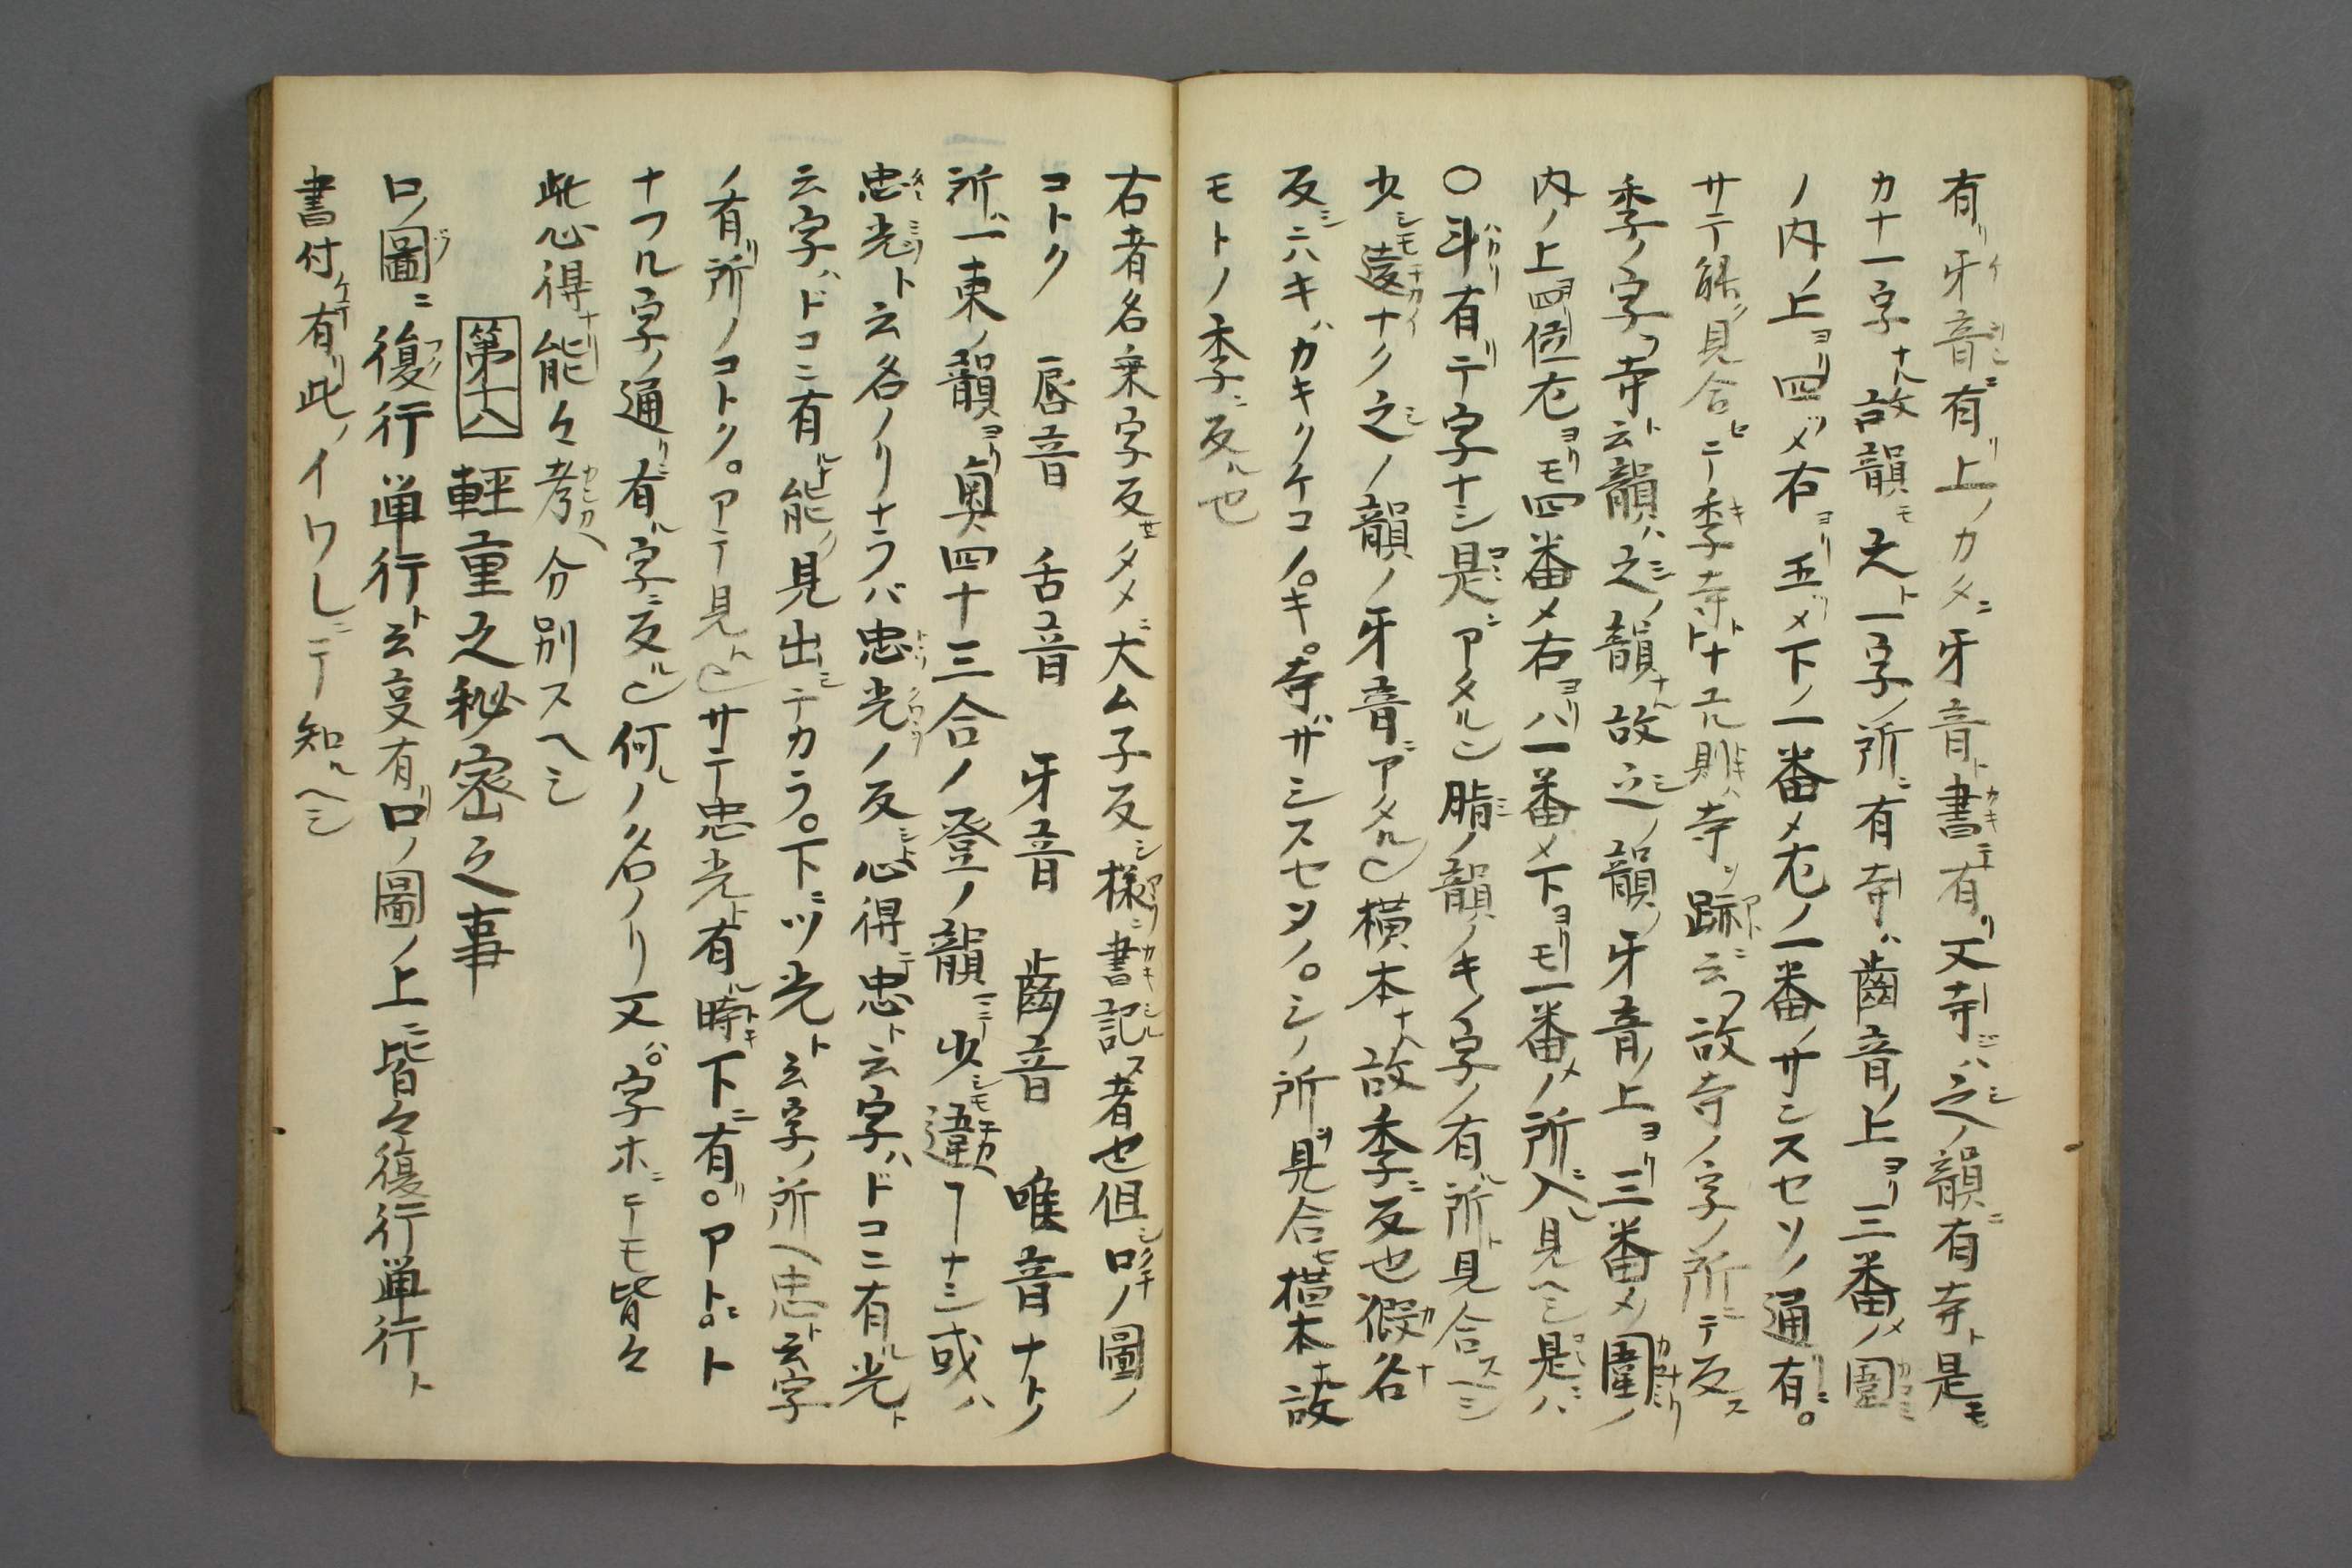 有リ牙音ニ有リ上ノカタニ牙音ト書テ有リ又寺ハ之ノ韻ニ有寺ト是モ
カナ一字ナル故韻モ又ト一字ノ所ニ有寺ハ齒音ノ上ヨリ三番メノ圍
ノ内ノ上ヨリ四ツメ右ヨリ五ツメ下ノ一番メ左ノ一番ノサシスセソノ通ニ有。
サテ能ク見合セテ季寺ト十エル則ハ寺ノ跡ニ云フ故寺ノ字ノ所ニテ反ス
季ノ字フ寺ト云韻ハ之ノ韻ナル故之ノ韻ノ牙音ノ上ヨリ三番メノ圍ノ
内ノ上ヨリ四位左ヨリモ四番メ右ヨリハ一番メ下ヨリモ一番メノ所ニ入ル見ヘシ是ニハ
〇斗リ有リテ字ナシ是ニアタル乚脂ノ韻ノキノ字ノ有ル所ト見合スヘシ
少シモ違ナク之ノ韻ノ牙音ニアタル乚横本ナル故季ニ反也假名
反シニハキハカキクケコノ。キ。寺ハサシスセソノ。シノ所ヲ見合セ横本ナル故
モトノ季ニ反ル也
右者名乗字反サセタメニ大ム子反シ様ニ書記ス者也但シ口ノ圖ノ
コトク　唇音　舌音　牙音　齒音　喉音ナトノ
所ハ一東ノ韻ヨリ奥四十三合ノ登ノ韻ニテ少シモ違フナシ或ハ
忠光ト云名ノリナラバ忠光ノ反シ心得テ忠ト云字ハドコニ有ル光ト
云字ハドコニ有ルト能ク見出シテカラ。下ニツ光ト云字ノ所ヘ忠ト云字
ノ有リ所ノコトク。アテ見ル乚サテ忠光ト有ル時下ニ有リ。アトニ。ト
ナフル字ノ通リニ有ル字ニ反ル乚何ルノ名ノリ又ハ。字ホニテモ皆々
此心得ナリ能々考ヘ分別スヘシ
第十八　輕重之秘密之事
口ノ圖ニ復行単行ト云叓有リ口ノ圖ノ上ニ皆々復行単行ト
書付ケテ有リ此ノイワレニテ知ルヘシ